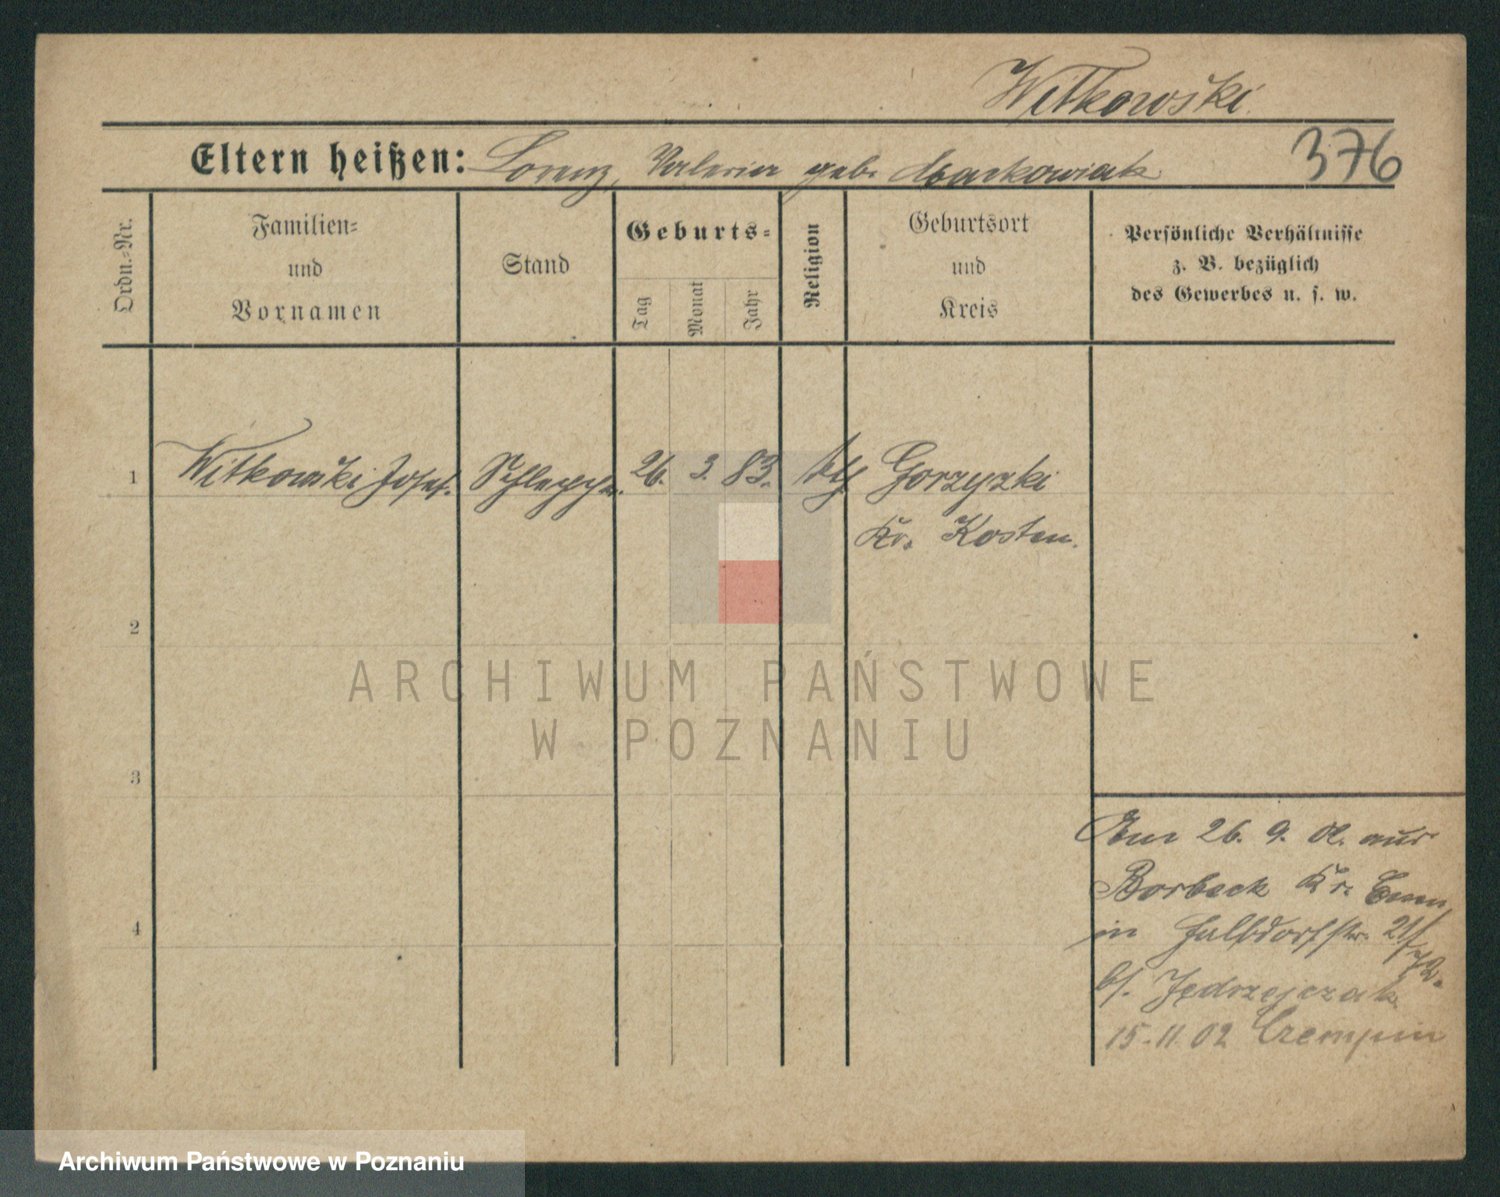 Witkowski.
Eltern heißen: Lorenz, Valeria geb. Markowiak
376
Ordn.-Nr.
Familien-
und
Vornamen
Stand
Geburts-
Tag
Monat
Jahr
Religion
Geburtsort
und
Kreis
Persönliche Verhältnisse
z. B. bezüglich
des Gewerbes u. s. w.
1 Witkowski Josef. Schlepper. 26. 3. 83. kth Gorzyzki
Kr. Kosten.
2
3
4
Am 26. 9. 02. aus
Borbeck Kr. Essen
in 21/
72.
bs. Jędrzejczak
15-11 02 Czempin
ARCHIWUM PAŃSTWOWE
W POZNANIU
Archiwum Państwowe w Poznaniu